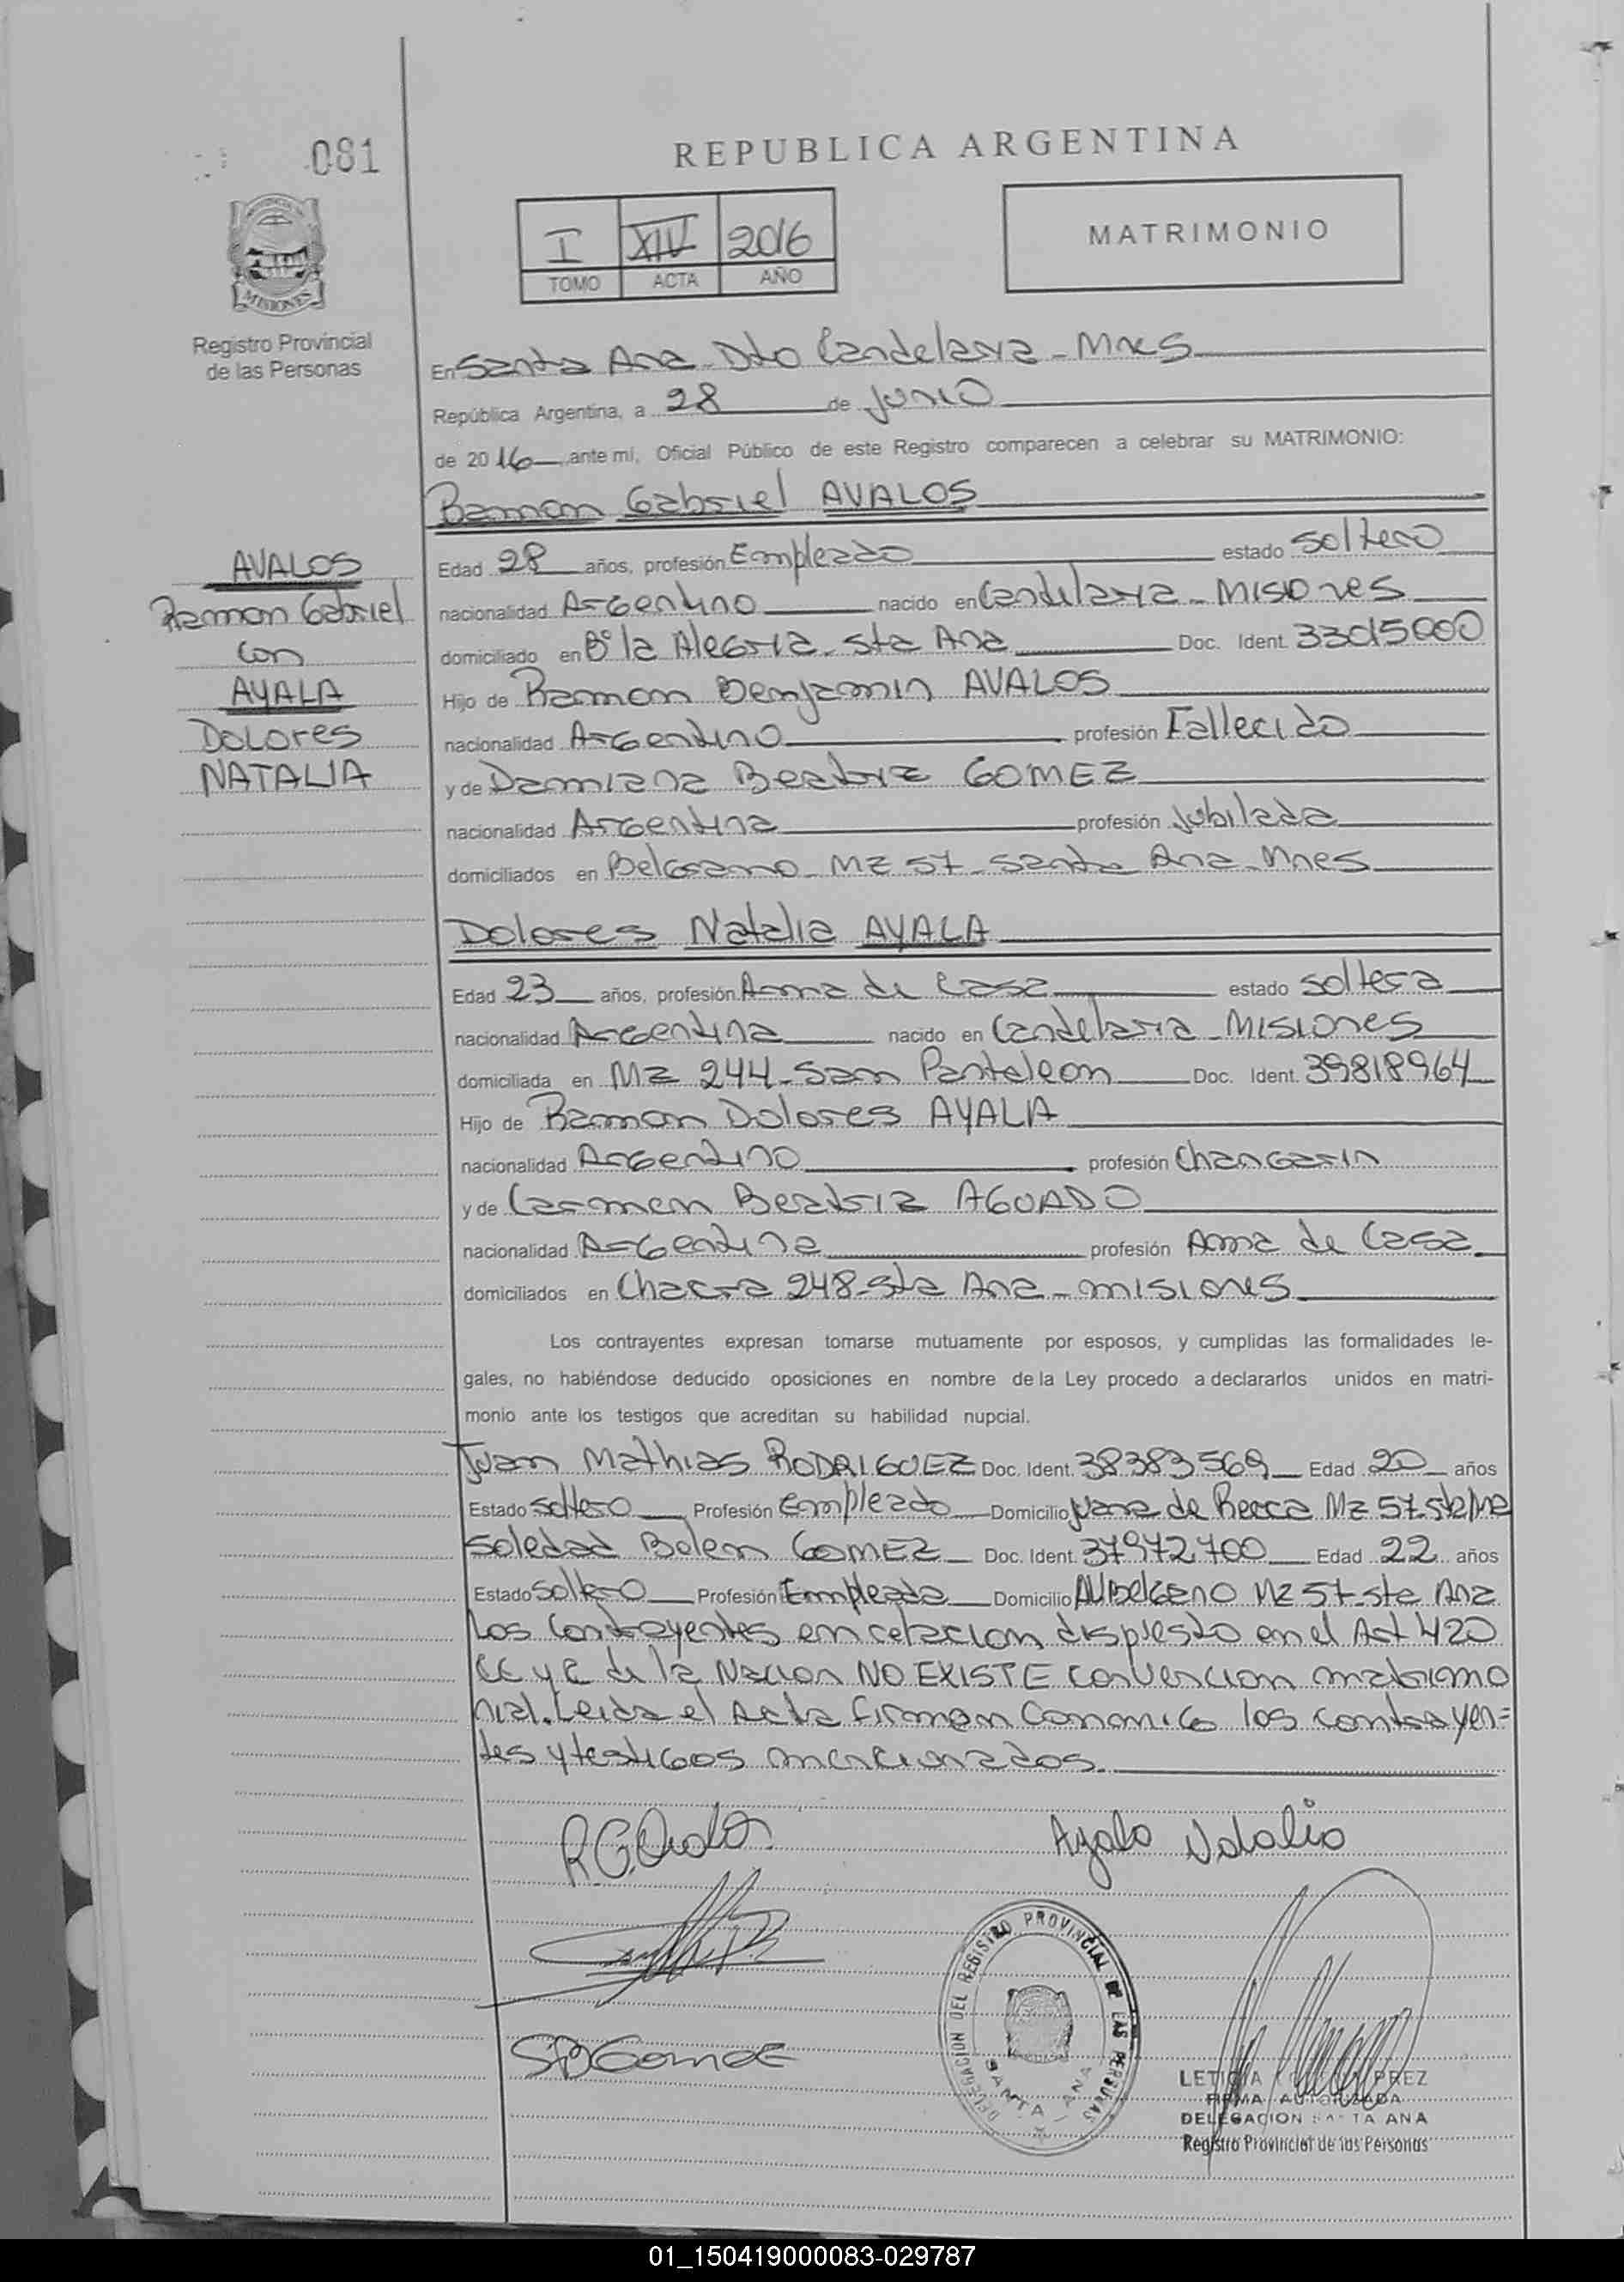 081
REPUBLICA ARGENTINA
I XIV 2016
TOMO ACTA AÑO
MATRIMONIO
MISIONES
Registro Provincial
de las Personas
En Santa Ana - Dto Candelaria - Mnes
República Argentina, a 28 de Junio
de 2016 ante mí, Oficial Público de este Registro comparecen a celebrar su MATRIMONIO:
Ramon Gabriel AVALOS
AVALOS
Ramon Gabriel
con
AYALA
Dolores
NATALIA
Edad 28 años, profesión Empleado estado soltero
nacionalidad Argentino nacido en Candelaria - Misiones
domiciliado en B° la Alegria - Sta Ana Doc. Ident. 33015000
Hijo de Ramon Benjamin AVALOS
nacionalidad Argentino profesión Fallecido
y de Damiana Beatriz GOMEZ
nacionalidad Argentina profesión Jubilada
domiciliados en Belgrano - Mz 57 - Santa Ana - Mnes
Dolores Natalia AYALA
Edad 23 años, profesión Ama de Casa estado soltera
nacionalidad Argentina nacido en Candelaria - Misiones
domiciliada en Mz 244 - San Panteleon Doc. Ident. 39818964
Hijo de Ramon Dolores AYALA
nacionalidad Argentino profesión Changarin
y de Carmen Beatriz AGUADO
nacionalidad Argentina profesión Ama de Casa
domiciliados en Chacra 248 - Sta Ana - Misiones
Los contrayentes expresan tomarse mutuamente por esposos, y cumplidas las formalidades le-
gales, no habiéndose deducido oposiciones en nombre de la Ley procedo a declararlos unidos en matri-
monio ante los testigos que acreditan su habilidad nupcial.
Juan Mathias RODRIGUEZ Doc. Ident. 38383569 Edad 20 años
Estado soltero Profesión Empleado Domicilio Juana de Mz 57 - Sta Ana
Soledad Belen GOMEZ Doc. Ident. 37972700 Edad 22 años
Estado Soltero Profesión Empleada Domicilio Mz 57 - Sta Ana
Los Contrayentes en relacion dispuesto en el Art 420
CC y C de la Nacion NO EXISTE convencion matrimo
nial. Leida el Acta firman conmigo los contrayen=
tes y testigos mencionados.
Ayala Natalia
SBGomez
DELEGACION DEL REGISTRO PROVINCIAL DE LAS PERSONAS
SANTA ANA
LETICIA
FIRMA AUTORIZADA
DELEGACION SANTA ANA
Registro Provincial de las Personas
01_150419000083-029787